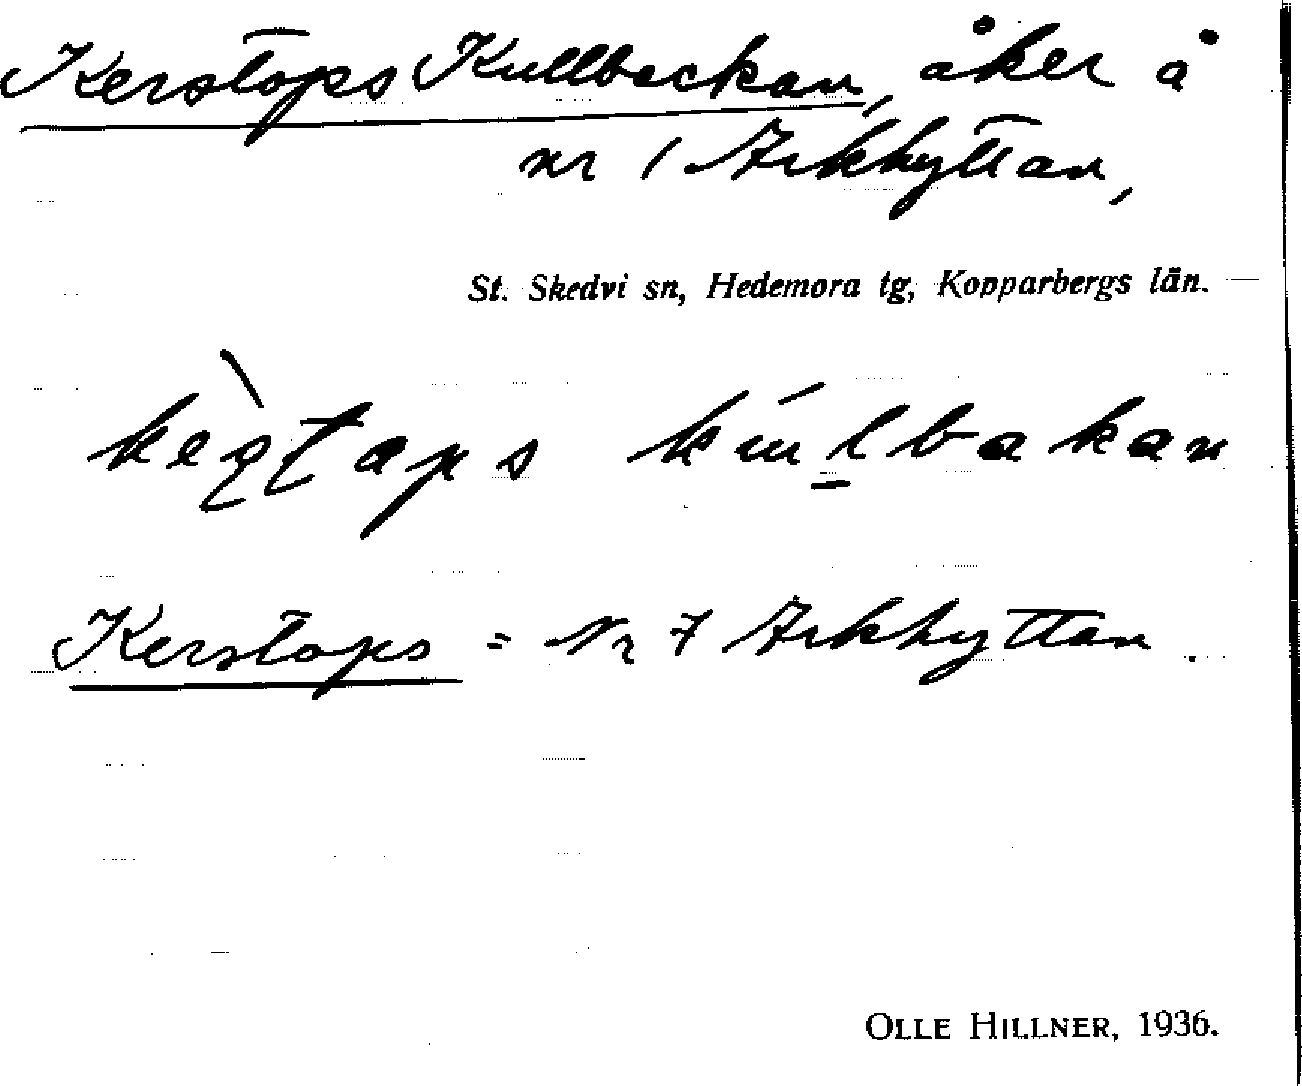 Kerstops Kullbackan, åker å
nr 1 Arkhyttan,
St. Skedvi sn, Hedemora tg, Kopparbergs län.
Kerstops = Nr 7 Arkhyttan.
OLLE HILLNER, 1936.